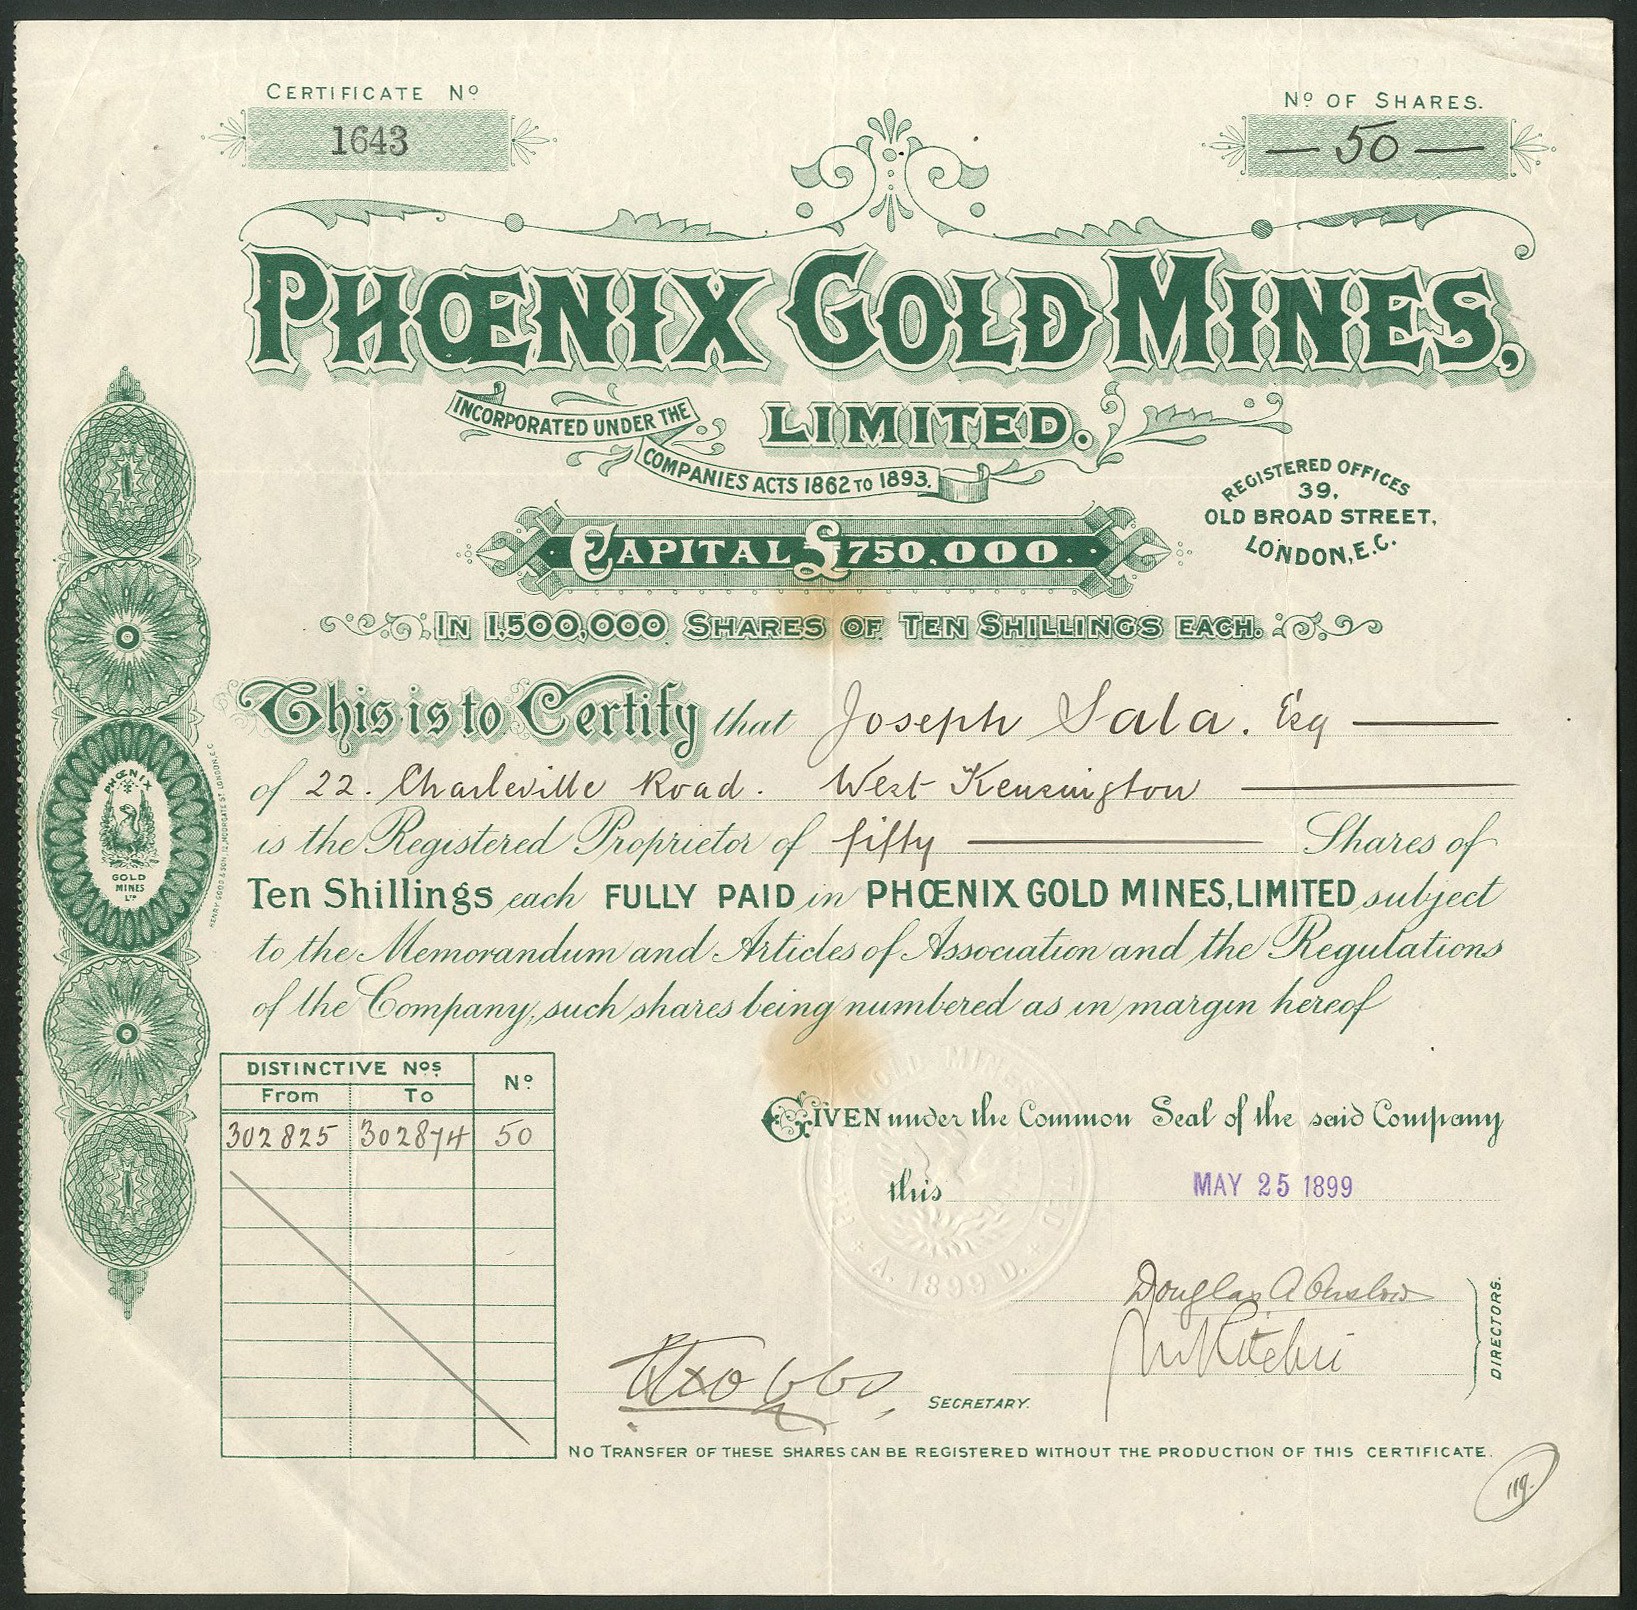 CERTIFICATE Nº
1643
Nº OF SHARES.
— 50 —
PHŒNIX GOLD MINES,
LIMITED.
INCORPORATED UNDER THE
COMPANIES ACTS 1862 TO 1893.
REGISTERED OFFICES
39,
OLD BROAD STREET,
LONDON, E.C.
CAPITAL £750,000.
IN 1,500,000 SHARES OF TEN SHILLINGS EACH.
This is to Certify that Joseph Sala. Esq
of 22. Charleville Road. West Kensington
is the Registered Proprietor of fifty Shares of
Ten Shillings each FULLY PAID in PHŒNIX GOLD MINES, LIMITED subject
to the Memorandum and Articles of Association and the Regulations
of the Company, such shares being numbered as in margin hereof
PHŒNIX
GOLD
MINES
LTD
1
1
DISTINCTIVE Nos
Nº
From To
302825 302874 50
GOLD MINES
A. 1899 D.
GIVEN under the Common Seal of the said Company
this MAY 25 1899
Douglas A Onslow
Ritchie
DIRECTORS.
SECRETARY.
NO TRANSFER OF THESE SHARES CAN BE REGISTERED WITHOUT THE PRODUCTION OF THIS CERTIFICATE.
119.